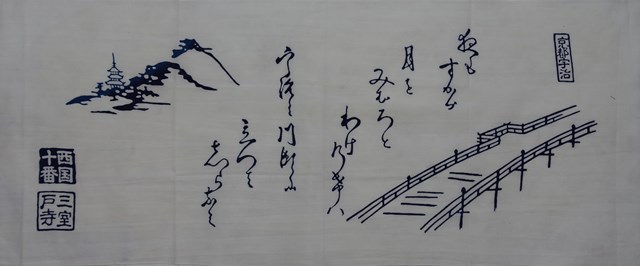 京都宇治
夜も
すがら
月を
みむろと
わけ
ゆけハ
宇治の川瀬に
立つは
しらなみ
西国
十番
三室
戸寺